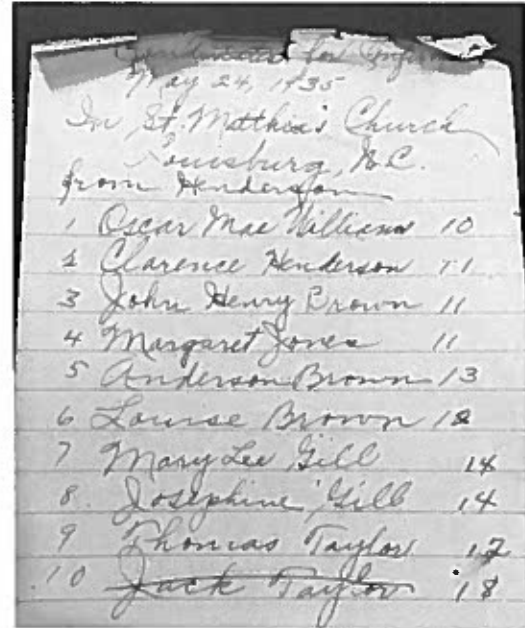 Candidates for Confirm
May 24, 1935
In St. Matthia's Church
Louisburg, N.C.
from Henderson
1 Oscar Mae Williams 10
2 Clarence Henderson 11
3 John Henry Brown 11
4 Margaret Jones 11
5 Anderson Brown 13
6 Louise Brown 12
7 Mary Lee Gill 14
8. Josephine Gill 14
9 Thomas Taylor 17
10 Jack Taylor 18